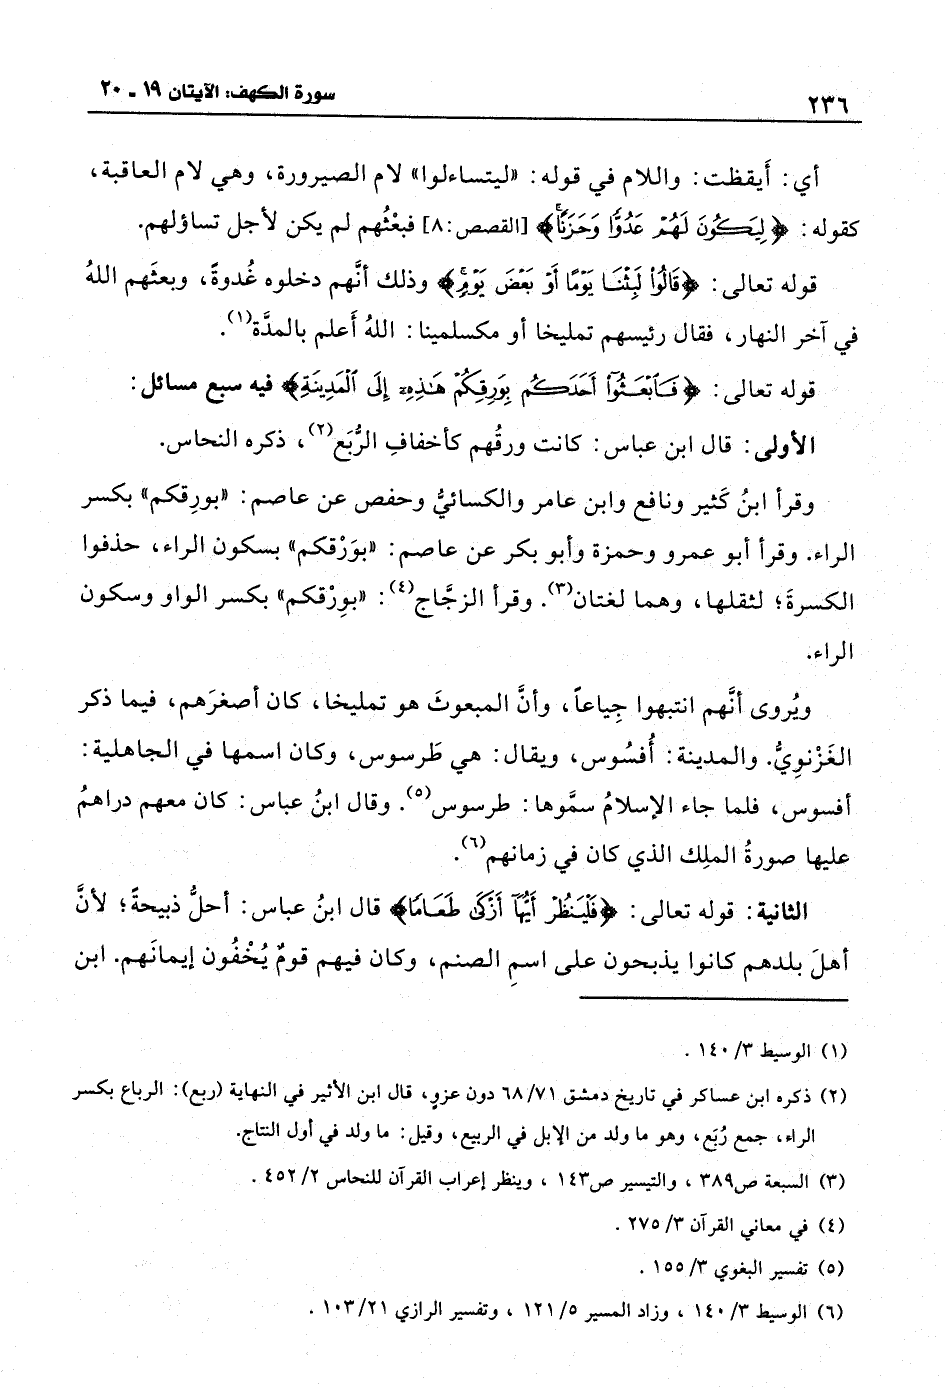 ٢٣٦
سورة الكهف: الآيتان ١٩ ـ ٢٠
أي: أَيقظت: واللام في قوله: «ليتساءلوا» لام الصيرورة، وهي لام العاقبة،
كقوله: ﴿لِيَكُونَ لَهُمْ عَدُوًّا وَحَزَنًا﴾ [القصص:٨] فبعْثُهم لم يكن لأجل تساؤلهم.
قوله تعالى: ﴿قَالُوا۟ لَبِثْنَا يَوْمًا أَوْ بَعْضَ يَوْمٍ﴾ وذلك أنَّهم دخلوه غُدوةً، وبعثَهم اللهُ
في آخر النهار، فقال رئيسهم تمليخا أو مكسلمينا: اللهُ أَعلم بالمدَّة(١).
قوله تعالى: ﴿فَٱبْعَثُوٓا۟ أَحَدَكُم بِوَرِقِكُمْ هَٰذِهِۦٓ إِلَى ٱلْمَدِينَةِ﴾ فيه سبع مسائل:
الأولى: قال ابن عباس: كانت ورقُهم كأخفافِ الرُّبَع(٢)، ذكره النحاس.
وقرأ ابنُ كَثير ونافع وابن عامر والكسائيُّ وحفص عن عاصم: «بورِقكم» بكسر
الراء. وقرأ أبو عمرو وحمزة وأبو بكر عن عاصم: «بوَرْقكم» بسكون الراء، حذفوا
الكسرةَ؛ لثقلها، وهما لغتان(٣). وقرأ الزجَّاج(٤): «بوِرْقكم» بكسر الواو وسكون
الراء.
ويُروى أنَّهم انتبهوا جِياعاً، وأنَّ المبعوثَ هو تمليخا، كان أصغرَهم، فيما ذكر
الغَزْنوِيُّ. والمدينة: أُفسُوس، ويقال: هي طَرسوس، وكان اسمها في الجاهلية:
أفسوس، فلما جاء الإسلامُ سمَّوها: طرسوس(٥). وقال ابنُ عباس: كان معهم دراهمُ
عليها صورةُ الملِك الذي كان في زمانهم(٦).
الثانية: قوله تعالى: ﴿فَلْيَنظُرْ أَيُّهَآ أَزْكَىٰ طَعَامًا﴾ قال ابنُ عباس: أحلُّ ذبيحةً؛ لأنَّ
أهلَ بلدهم كانوا يذبحون على اسمِ الصنم، وكان فيهم قومٌ يُخْفُون إيمانَهم. ابن
(١) الوسيط ٣/ ١٤٠ .
(٢) ذكره ابن عساكر في تاريخ دمشق ٧١/ ٦٨ دون عزوٍ، قال ابن الأثير في النهاية (ربع): الرباع بكسر
الراء، جمع رُبَع، وهو ما ولد من الإبل في الربيع، وقيل: ما ولد في أول النتاج.
(٣) السبعة ص٣٨٩ ، والتيسير ص١٤٣ ، وينظر إعراب القرآن للنحاس ٢/ ٤٥٢ .
(٤) في معاني القرآن ٣/ ٢٧٥ .
(٥) تفسير البغوي ٣/ ١٥٥ .
(٦) الوسيط ٣/ ١٤٠ ، وزاد المسير ٥/ ١٢١ ، وتفسير الرازي ٢١/ ١٠٣ .